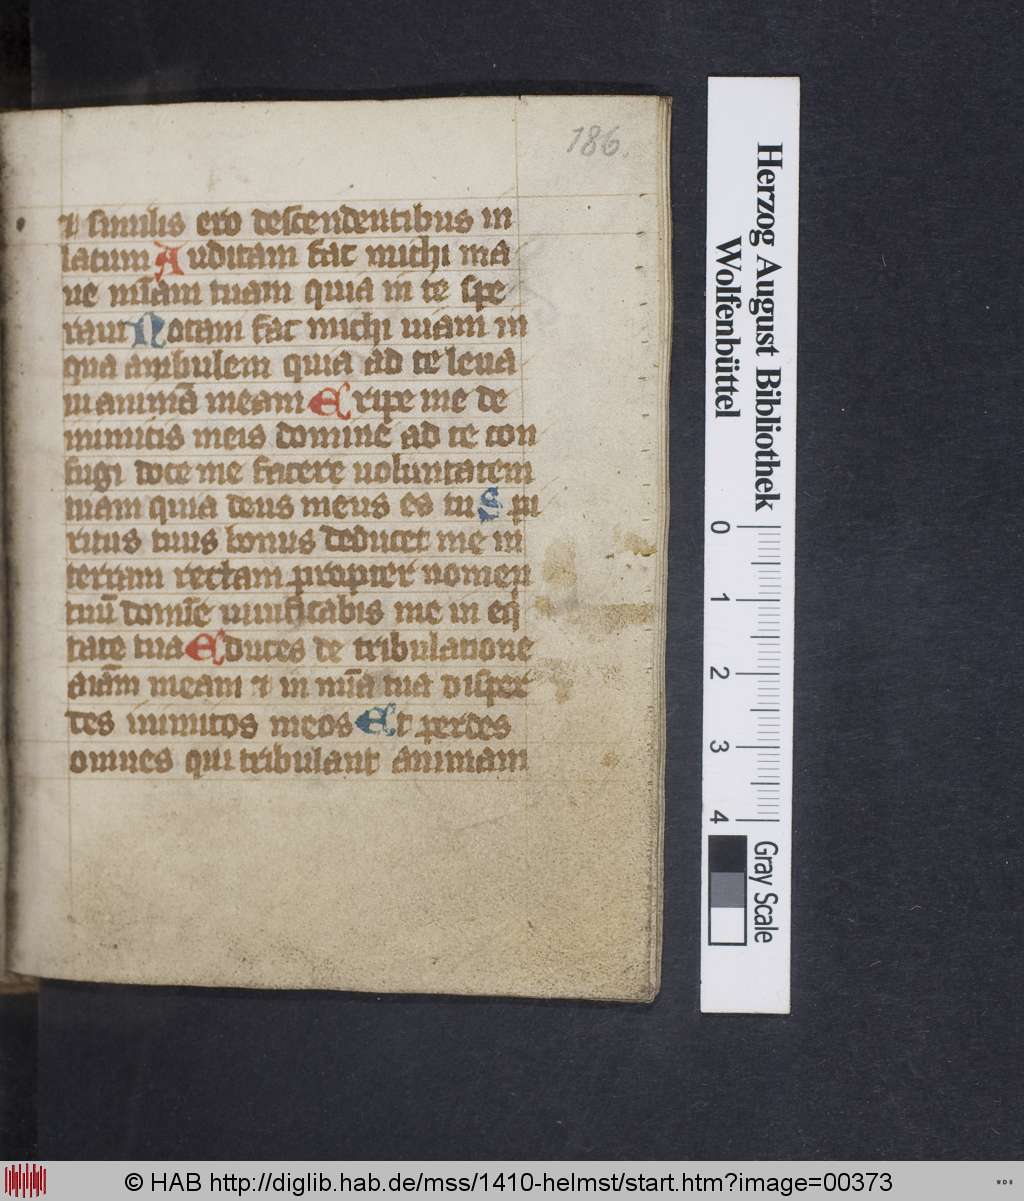 186.
⁊ similis ero descendentibus in
latum Auditam fac michi ma
ne mīam tuam quia in te spe
raui Notam fac michi uiam in
qua ambulem quia ad te leua
ui animā meam Eripe me de
inimicis meis domine ad te con
fugi doce me facere uoluntatem
tuam quia deus meus es tu Spi
ritus tuus bonus deducet me in
terram rectam propter nomen
tuū domīe uiuificabis me in eq
tate tua Educes de tribulatione
aīam meam ⁊ in mīa tua disper
des inimicos meos Et perdes
omnes qui tribulant animam
Herzog August Bibliothek
Wolfenbüttel
0 1 2 3 4
Gray Scale
© HAB http://diglib.hab.de/mss/1410-helmst/start.htm?image=00373